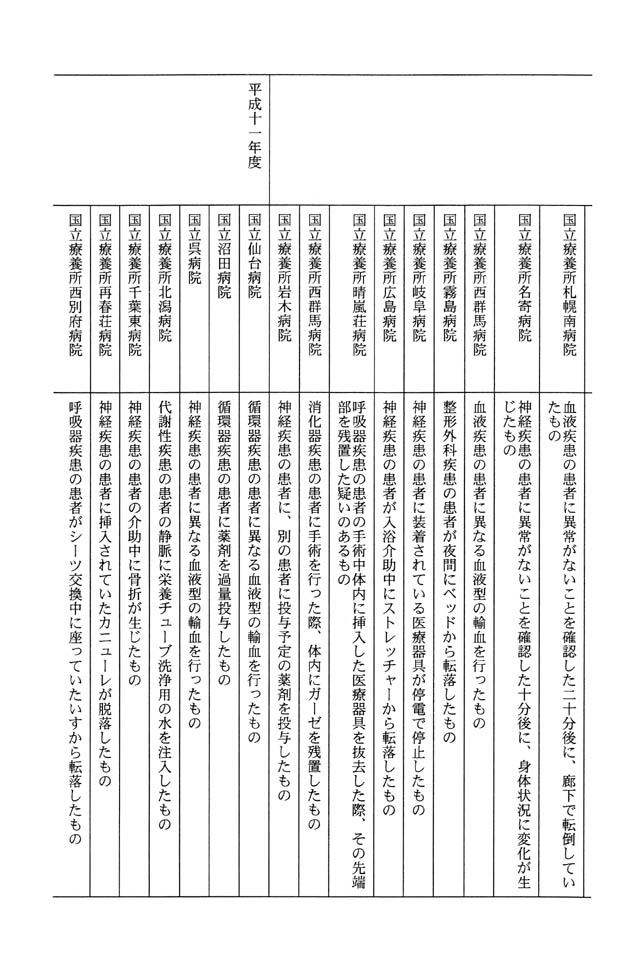 国立療養所札幌南病院
血液疾患の患者に異常がないことを確認した二十分後に、廊下で転倒してい
たもの
国立療養所名寄病院
神経疾患の患者に異常がないことを確認した十分後に、身体状況に変化が生
じたもの
国立療養所西群馬病院
血液疾患の患者に異なる血液型の輸血を行ったもの
国立療養所霧島病院
整形外科疾患の患者が夜間にベッドから転落したもの
国立療養所岐阜病院
神経疾患の患者に装着されている医療器具が停電で停止したもの
国立療養所広島病院
神経疾患の患者が入浴介助中にストレッチャーから転落したもの
国立療養所晴嵐荘病院
呼吸器疾患の患者の手術中体内に挿入した医療器具を抜去した際、その先端
部を残置した疑いのあるもの
国立療養所西群馬病院
消化器疾患の患者に手術を行った際、体内にガーゼを残置したもの
国立療養所岩木病院
神経疾患の患者に、別の患者に投与予定の薬剤を投与したもの
平成十一年度
国立仙台病院
循環器疾患の患者に異なる血液型の輸血を行ったもの
国立沼田病院
循環器疾患の患者に薬剤を過量投与したもの
国立呉病院
神経疾患の患者に異なる血液型の輸血を行ったもの
国立療養所北潟病院
代謝性疾患の患者の静脈に栄養チューブ洗浄用の水を注入したもの
国立療養所千葉東病院
神経疾患の患者の介助中に骨折が生じたもの
国立療養所再春荘病院
神経疾患の患者に挿入されていたカニューレが脱落したもの
国立療養所西別府病院
呼吸器疾患の患者がシーツ交換中に座っていたいすから転落したもの